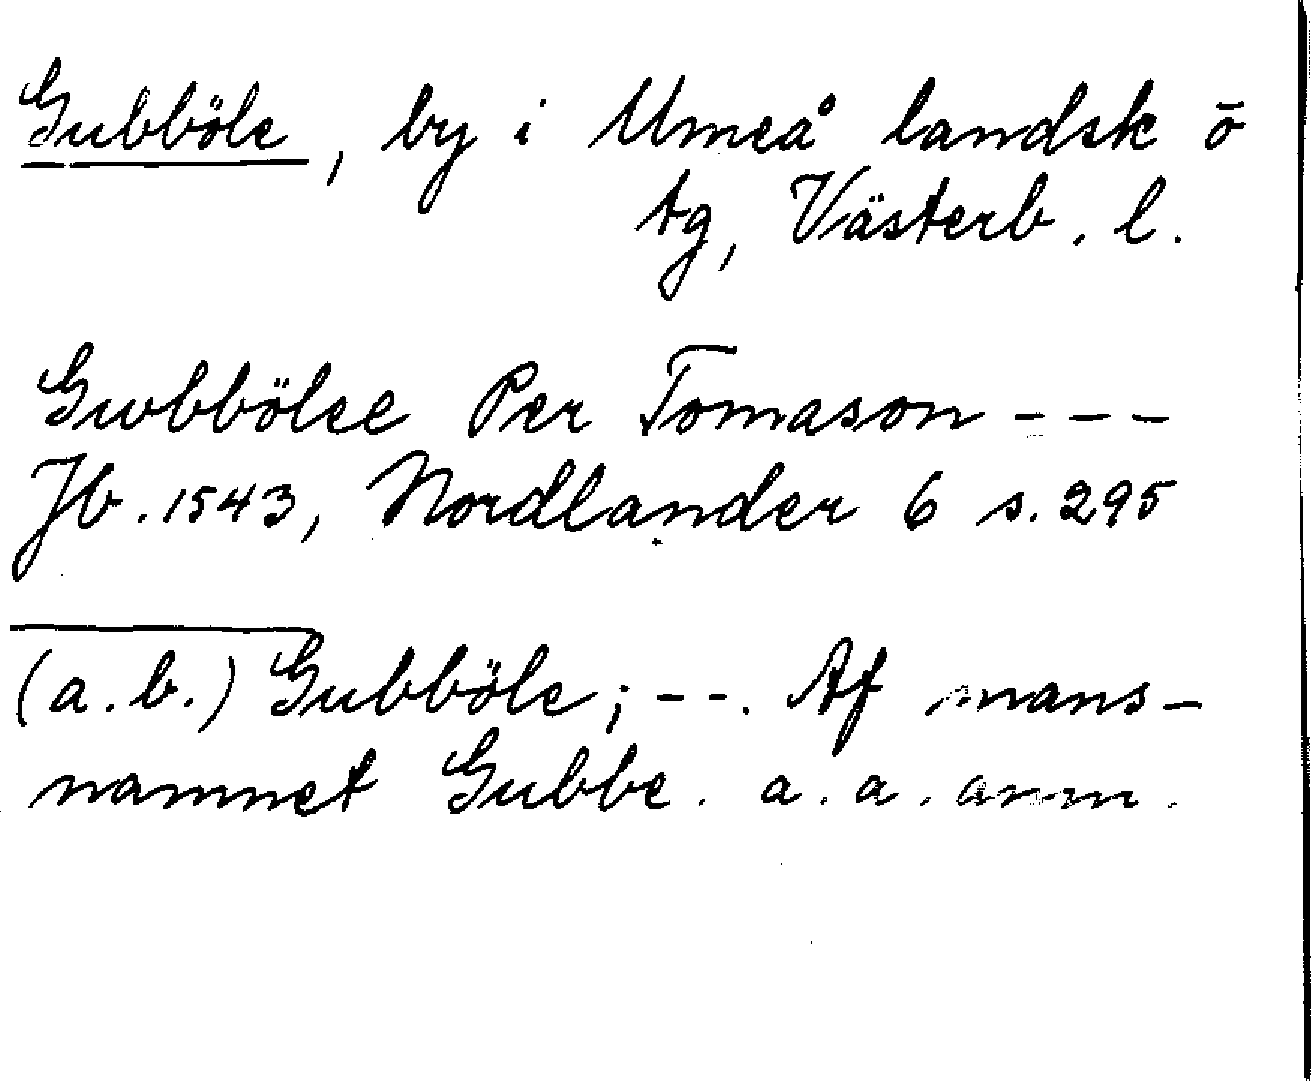 Gubböle, by i Umeå landsk ō
tg, Västerb. l.
Gwbbölee Per Tomason ---
Jb. 1543, Nordlander 6 s. 295
(a. b.) Gubböle; --. Af mans-
namnet Gubbe. a. a. anm.